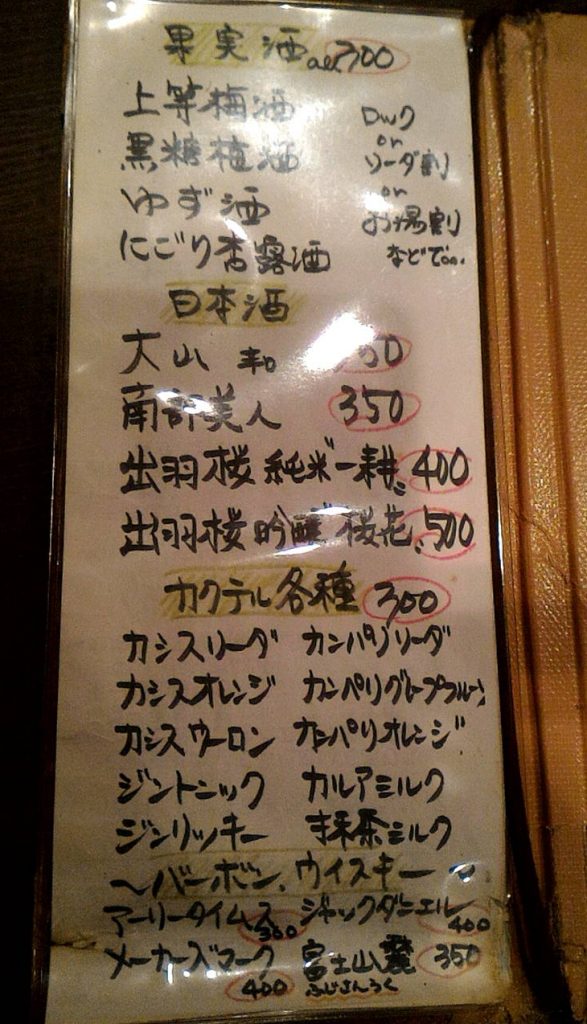 果実酒 all 300
上等梅酒
黒糖梅酒
ゆず酒
にごり杏露酒
ロック
or
ソーダ割
or
お湯割
などで…
日本酒
大山 50
南部美人 350
出羽桜 純米 一耕 400
出羽桜 吟醸 桜花 500
カクテル各種 300
カシスソーダ カンパリソーダ
カシスオレンジ カンペリグレープフルーツ
カシスウーロン カンパリオレンジ
ジントニック カルアミルク
ジンリッキー 抹茶ミルク
～バーボン、ウイスキー～
アーリータイムス 300 ジャックダニエル 400
メーカーズマーク 400 富士山麓 350
ふじさんろく